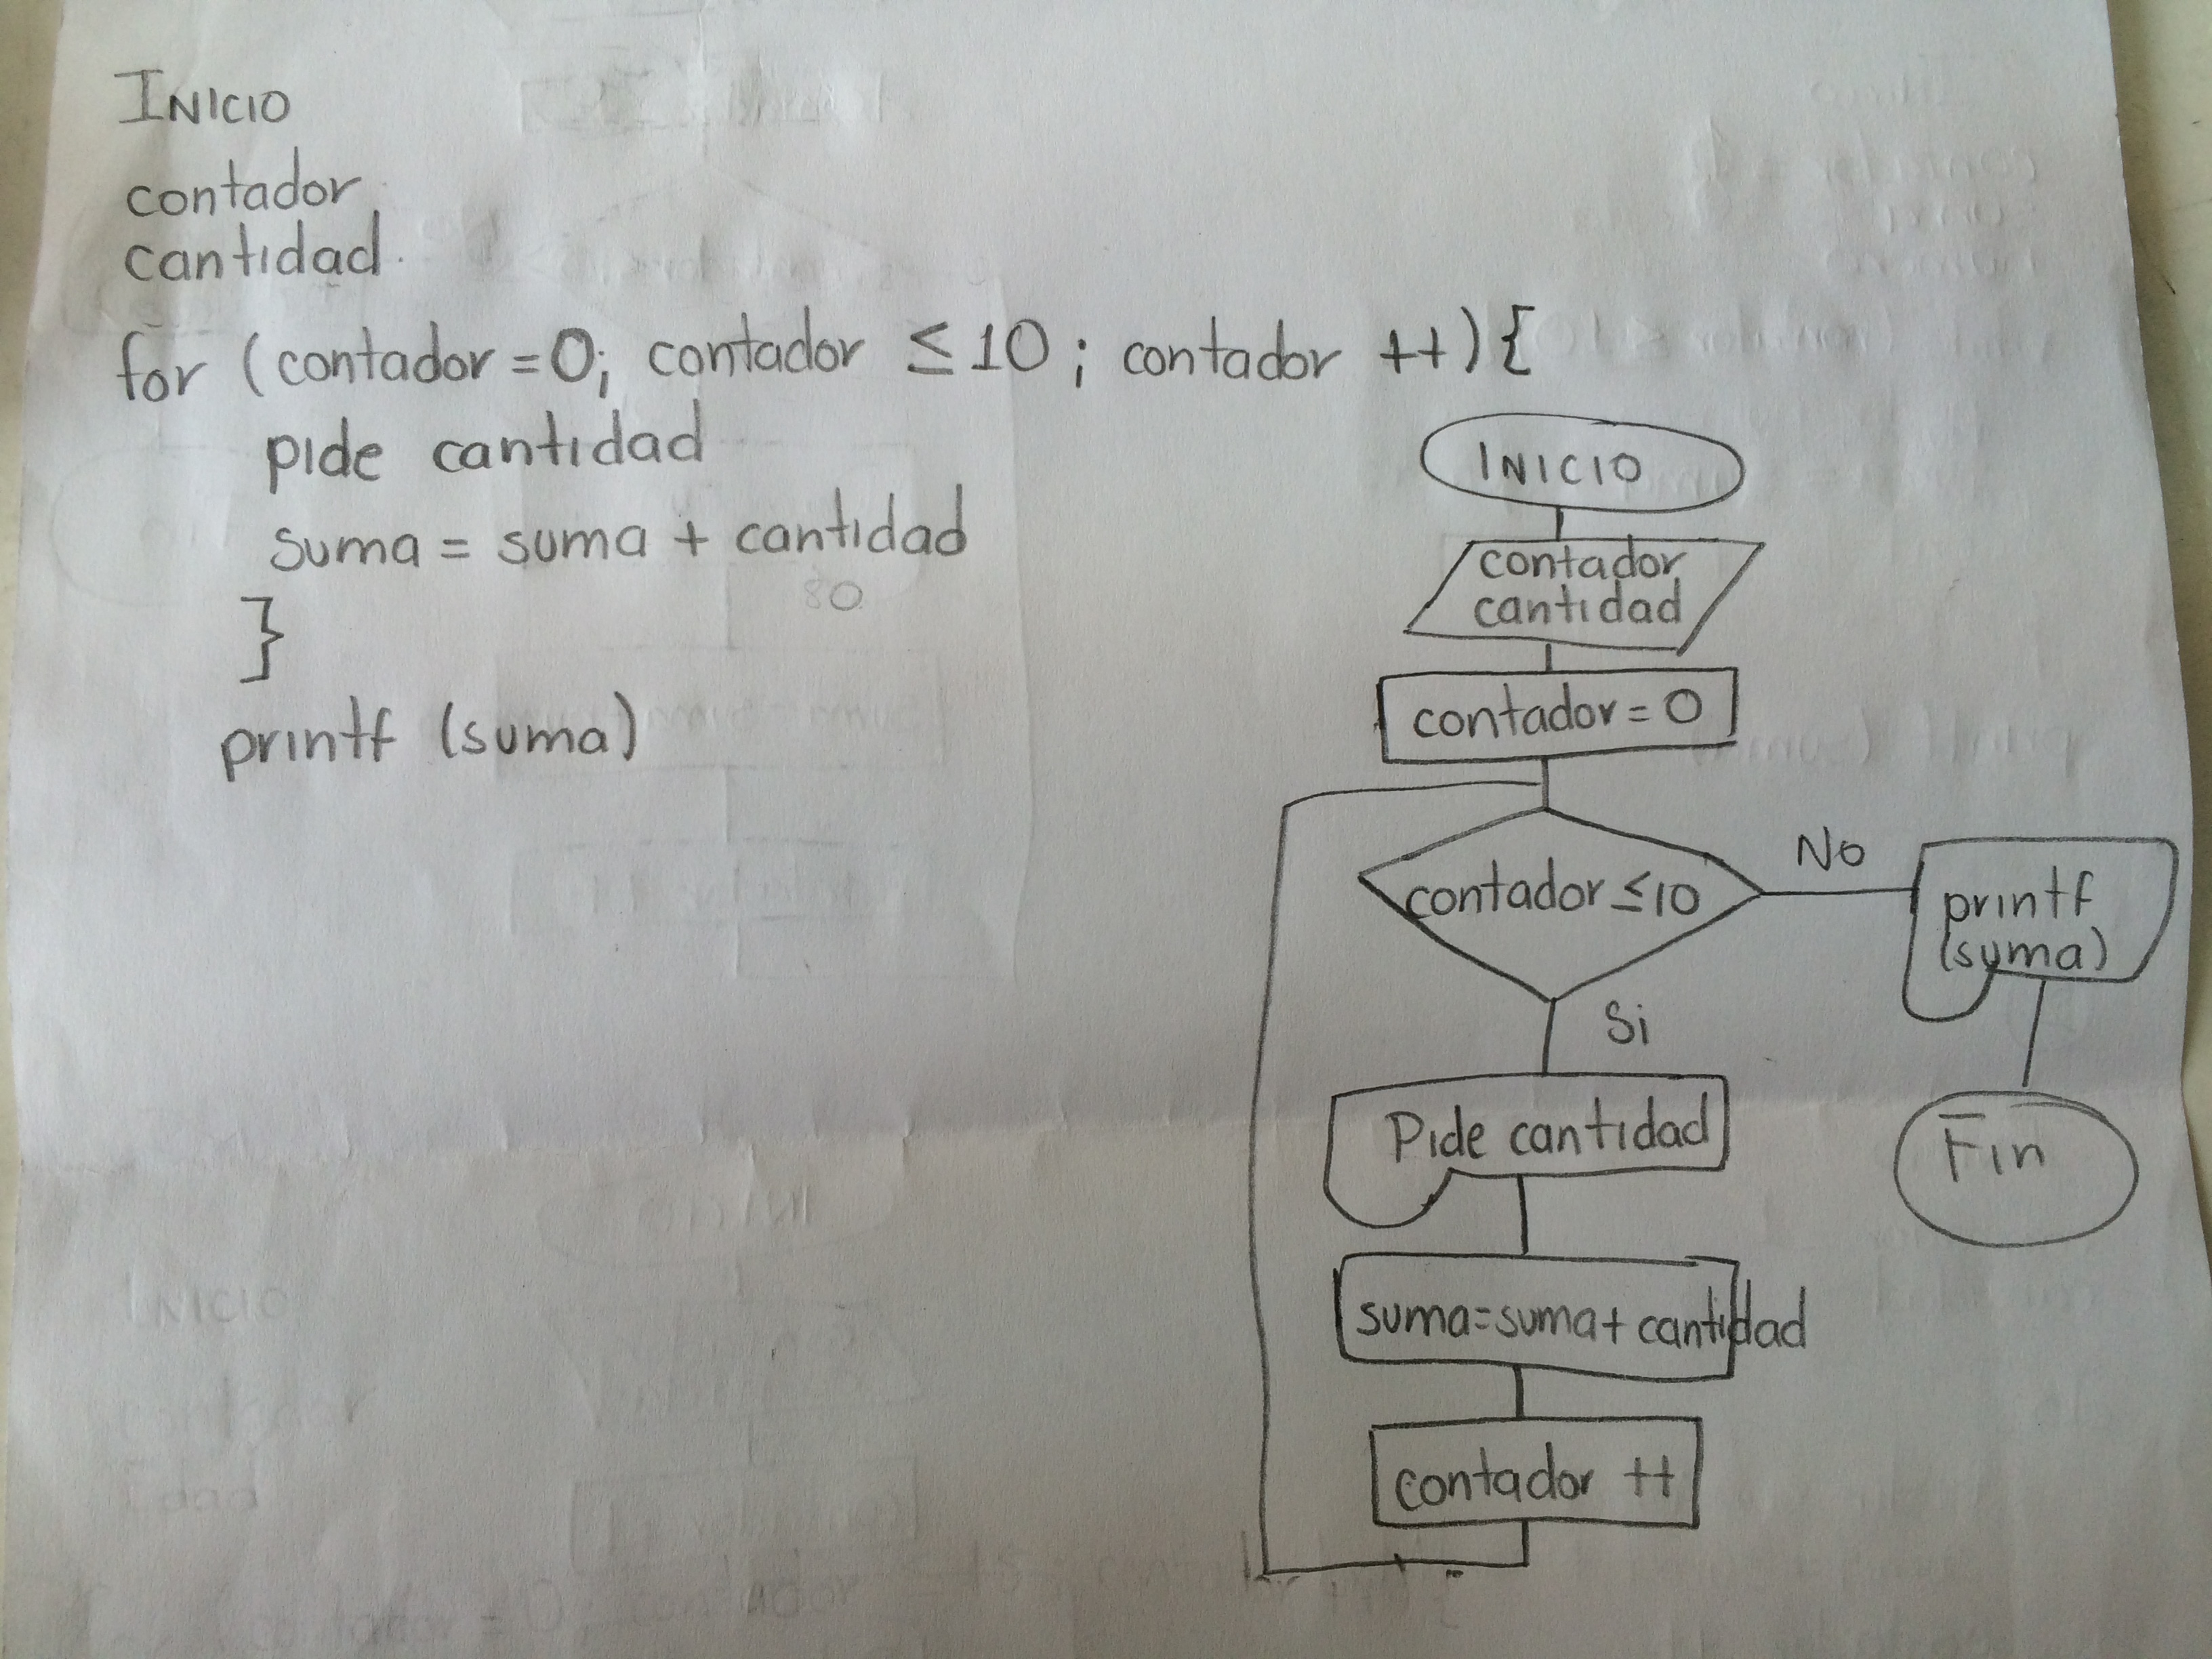 INICIO
contador
cantidad
for (contador = 0; contador ≤ 10 ; contador ++) {
pide cantidad
suma = suma + cantidad
}
printf (suma)
INICIO
contador
cantidad
contador = 0
contador ≤ 10
No
printf
(suma)
Fin
Si
Pide cantidad
suma = suma + cantidad
contador ++